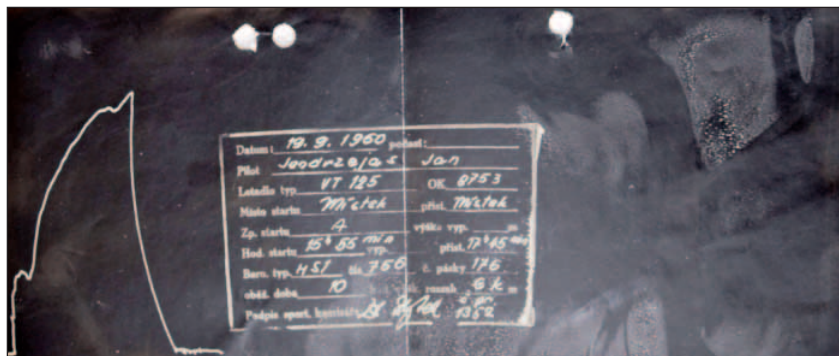 Datum: 19. 9. 1960 počasí:
Pilot Jeodrzejas Jan
Letadlo typ. VT 125 OK 8753
Místo startu Místek přist. Místek
Zp. startu A výška vyp. m
Hod. startu 15h 55 min vyp. přist. 17h 45
Baro. typ. HS1 čís 756 č. pásky 176
oběž. doba 10 rozsah 6 k m
Podpis sport. komisaře 1352